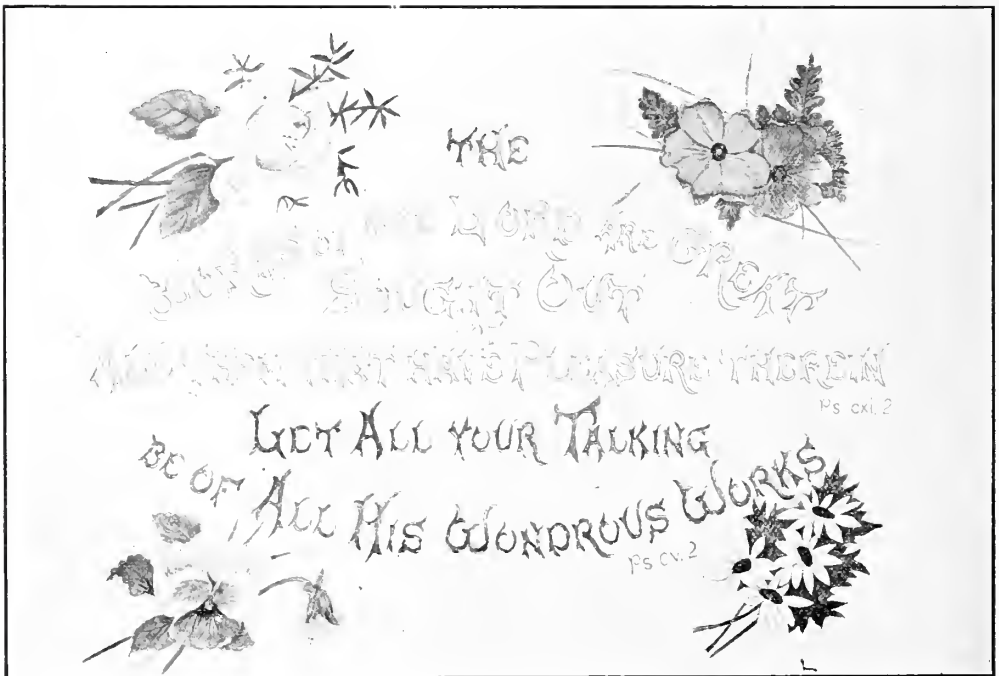 THE
LORD ARE GREAT
SOUGHT OUT
THAT HAVE PLEASURE THEREIN
Ps cxi. 2
LET ALL YOUR TALKING
BE OF ALL HIS WONDROUS WORKS
Ps cv. 2